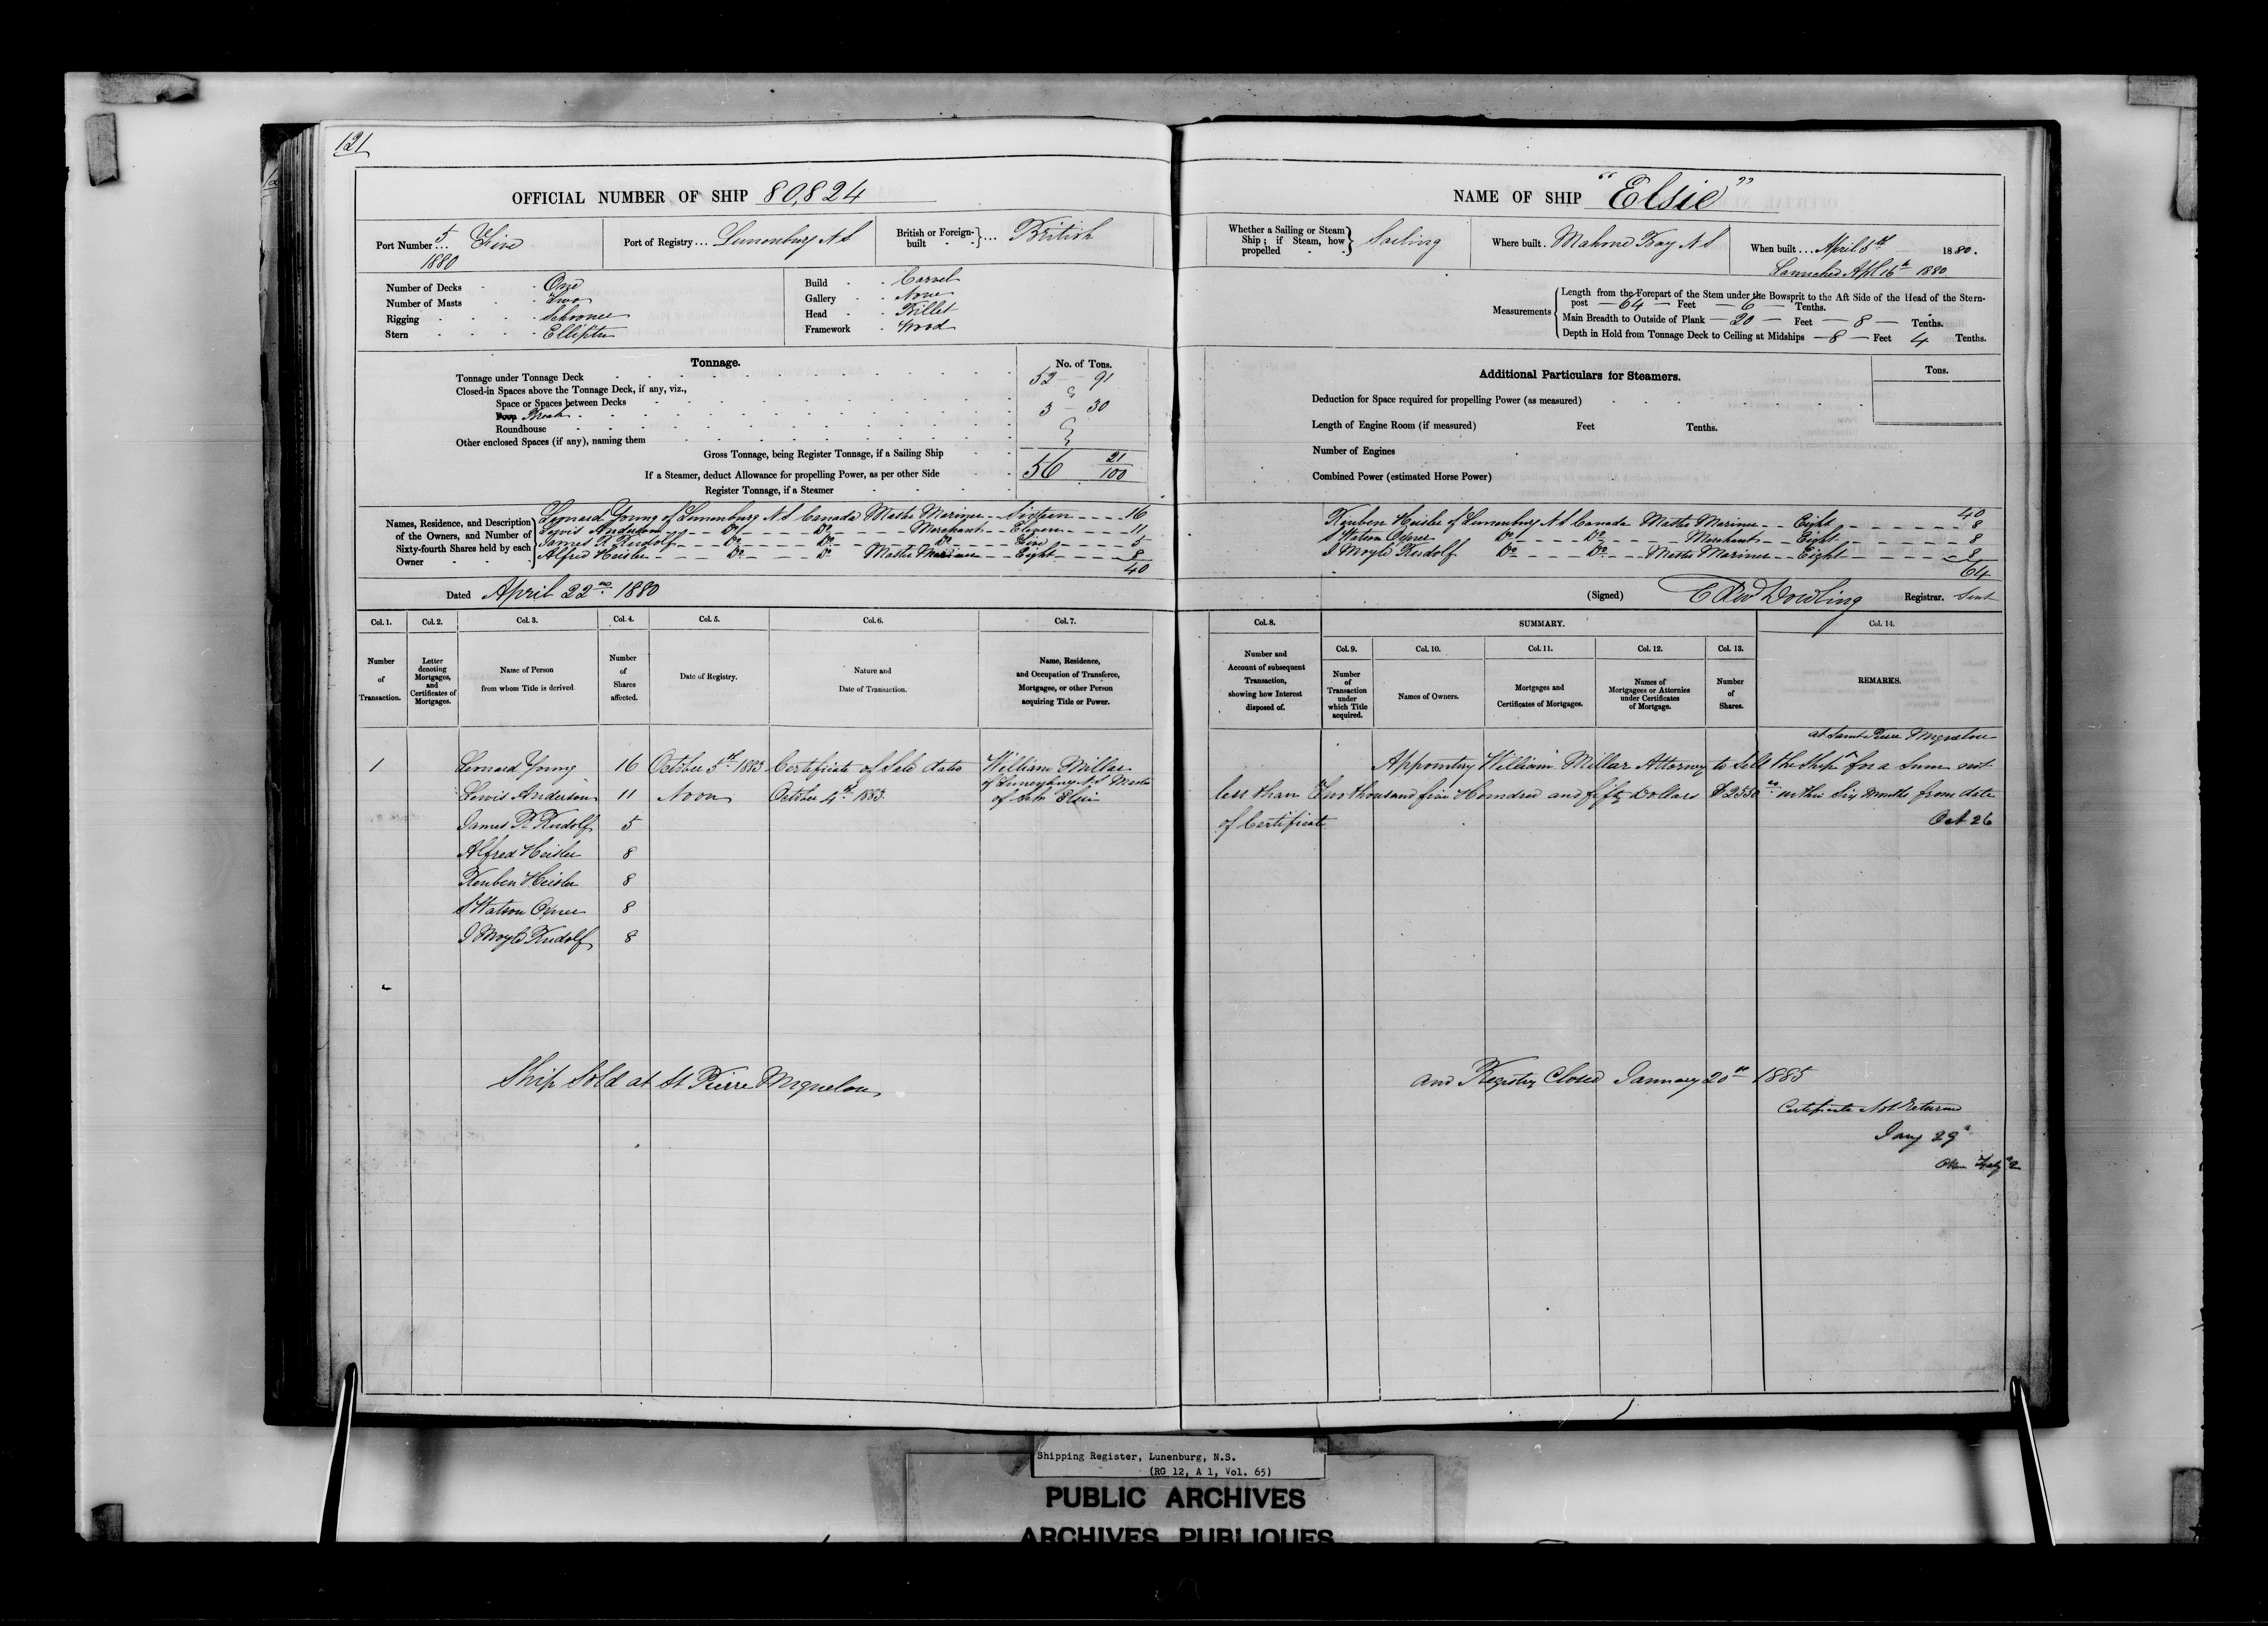 121
OFFICIAL NUMBER OF SHIP 80,824
Port Number 5/1880 Five
Port of Registry Lunenburg N S
British or Foreign-built British
Number of Decks One
Number of Masts Two
Rigging Schooner
Stern Elliptic
Build Carvel
Gallery None
Head Billet
Framework Wood
Tonnage.
No. of Tons.
Tonnage under Tonnage Deck 52 91
Closed-in Spaces above the Tonnage Deck, if any, viz.,
Space or Spaces between Decks
Poop Break 3 30
Roundhouse
Other enclosed Spaces (if any), naming them
Gross Tonnage, being Register Tonnage, if a Sailing Ship
If a Steamer, deduct Allowance for propelling Power, as per other Side 56 21/100
Register Tonnage, if a Steamer
Names, Residence, and Description of the Owners, and Number of Sixty-fourth Shares held by each Owner
Leonard Young of Lunenburg N S Canada Master Mariner Sixteen 16
Lewis Anderson Do Do Merchant Eleven 11
James R Rudolf Do Do Do Five 5
Alfred Heisler Do Do Master Mariner Eight 8
40
Dated April 22nd 1880
Col. 1. Col. 2. Col. 3. Col. 4. Col. 5. Col. 6. Col. 7.
Number of Transaction.
Letter denoting Mortgages, and Certificates of Mortgages.
Name of Person from whom Title is derived
Number of Shares affected.
Date of Registry.
Nature and Date of Transaction.
Name, Residence, and Occupation of Transferee, Mortgagee, or other Person acquiring Title or Power.
1 Leonard Young 16 October 5th 1883 Certificate of Sale dated William Millar
of Lunenburg N S Master
Lewis Anderson 11 Noon October 4th 1883 of Sch Elsie
James R Rudolf 5
Alfred Heisler 8
Reuben Heisler 8
S Watson Oxner 8
J Moyle Rudolf 8
Ship Sold at St Pierre Miquelon
NAME OF SHIP "Elsie"
Whether a Sailing or Steam Ship; if Steam, how propelled Sailing
Where built Mahone Bay N S
When built April 8th 1880.
Launched Apl 16th 1880
Measurements
Length from the Forepart of the Stem under the Bowsprit to the Aft Side of the Head of the Stern-
post 64 Feet 6 Tenths.
Main Breadth to Outside of Plank 20 Feet 8 Tenths.
Depth in Hold from Tonnage Deck to Ceiling at Midships 8 Feet 4 Tenths.
Additional Particulars for Steamers.
Tons.
Deduction for Space required for propelling Power (as measured)
Length of Engine Room (if measured) Feet Tenths.
Number of Engines
Combined Power (estimated Horse Power)
40
Reuben Heisler of Lunenburg N S Canada Master Mariner Eight 8
S Watson Oxner Do Do Merchant Eight 8
J Moyle Rudolf Do Do Master Mariner Eight 8
64
(Signed) Edw Dowling Registrar. Sent
Col. 8. SUMMARY. Col. 14.
Col. 9. Col. 10. Col. 11. Col. 12. Col. 13.
Number and Account of subsequent Transaction, showing how Interest disposed of.
Number of Transaction under which Title acquired.
Names of Owners.
Mortgages and Certificates of Mortgages.
Names of Mortgagees or Attornies under Certificates of Mortgage.
Number of Shares.
REMARKS.
at Saint Pierre Miquelon
Appointing William Millar Attorney to Sell the Ship for a Sum not
less than Two thousand five Hundred and fifty Dollars $2550 within Six Months from date
of Certificate Oct 26
and Registry Closed January 20th 1885
Certificate Not Returned
Jany 29th
Shipping Register, Lunenburg, N.S.
(RG 12, A 1, Vol. 65)
PUBLIC ARCHIVES
ARCHIVES PUBLIQUES